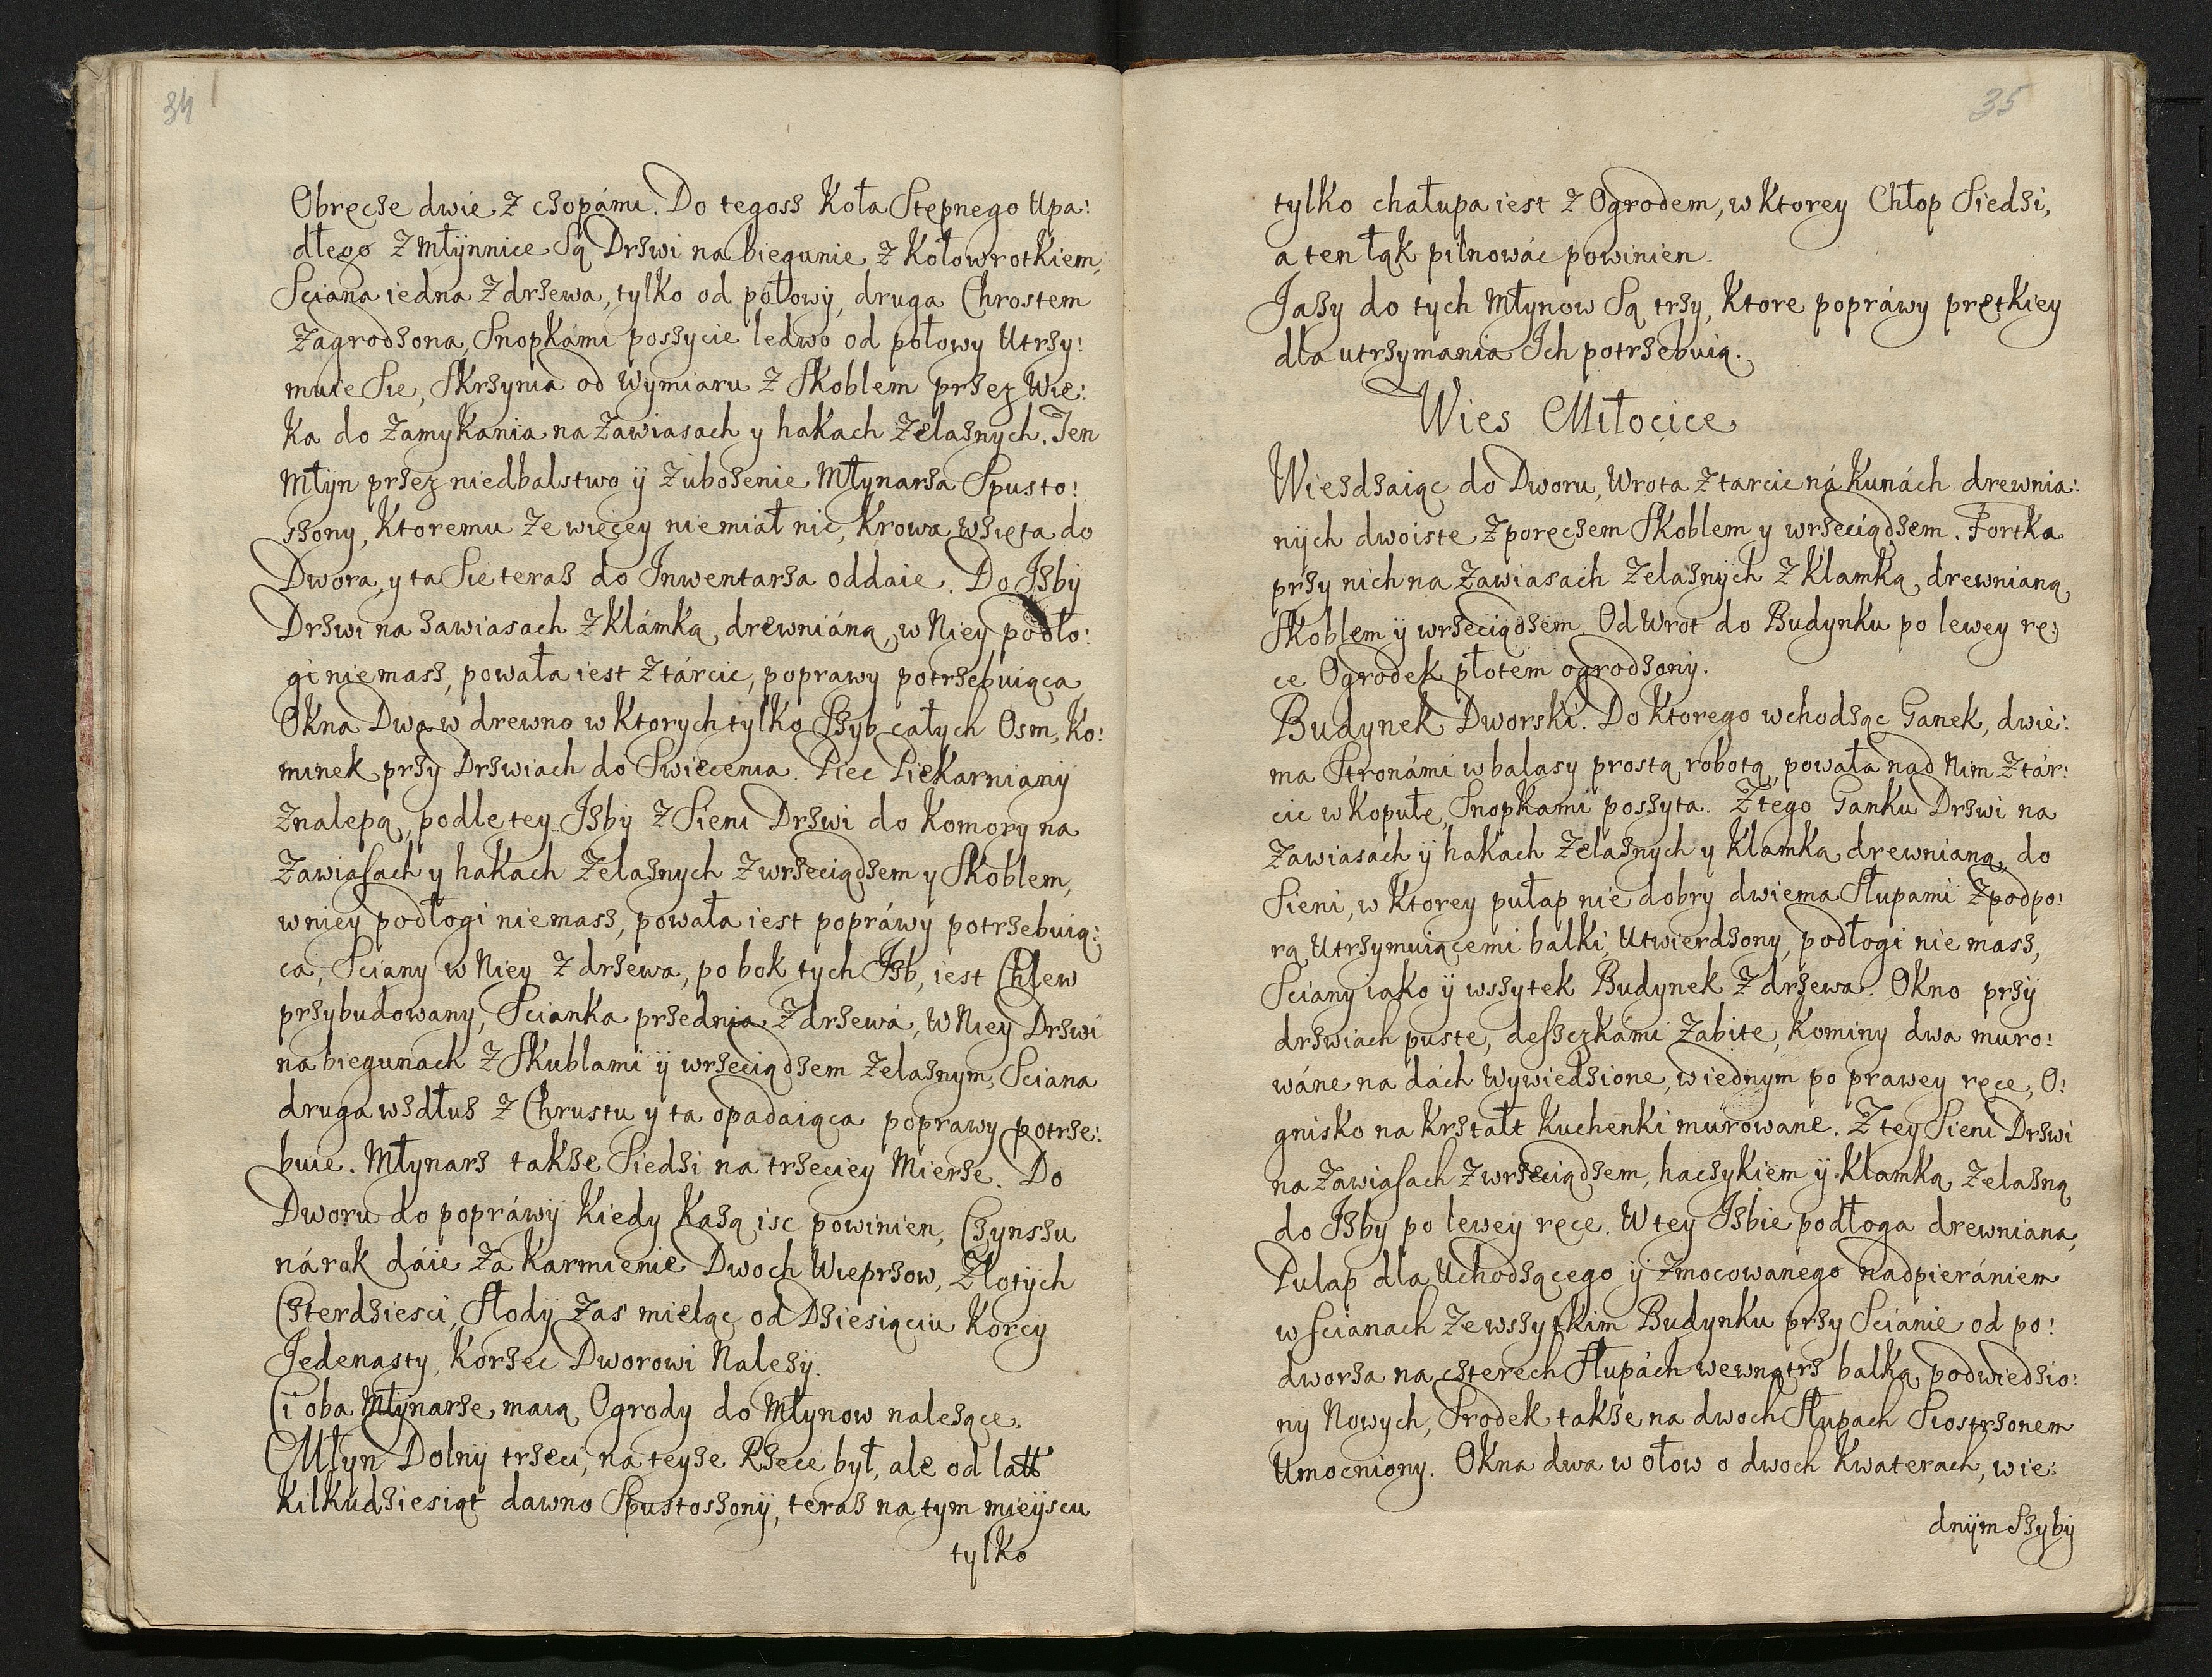 34
Obręcze dwie z czopámi. Do tegosz Koła Stępnego Upa:
dłego z młÿnnice Są Drzwi na biegunie z Kołowrotkiem,
Sciana iedna z drzewa, tylko od połowÿ, druga Chrostem
zagrodzona, Snopkámi poszycie ledwo od połowy Utrzy:
muie Sie, Skrzynia od Wymiaru z Skoblem przez Wie:
ka do zamykania na zawiasach y hakach Zelaznych. Ten
Młyn przez niedbalstwo ÿ zubożenie Młynarza Spusto:
szony, Ktoremu ze więcey niemiał nic, Krowa wzięta do
Dwora, y ta Sie teraz do Inwentarza oddaie. Do Izbÿ
Drzwi na zawiasach z klámką drewniáną, w Niey podło:
gi niemasz, powała iest z tárcic, poprawy potrzebuiąca
Okna Dwa w drewno w Ktorych tylko Szyb całych Osm, Ko:
minek przy Drzwiach do Swiecenia. Piec Piekarnianÿ
z nalepą, podle tey Izbÿ z Sieni Drzwi do Komory na
zawiasach y hakach Zelaznych z wrzeciądzem y Skoblem,
w niey podłogi niemasz, powała iest popráwy potrzebuią:
ca, Sciany w Niey z drzewa, po bok tych Izb, iest Chlew
przybudowany, Scianka przednia z drzewá, w Niey Drzwi
na biegunach z Skublami ÿ wrzeciądzem Zelaznym, Sciana
druga wzdłuz z Chrustu y ta opadaiąca poprawy potrze:
buie. Młynarz takze Siedzi na trzeciey Mierze. Do
Dworu do popráwÿ Kiedy Każą isc powinien, Czynszu
ná rok dáie za Karmienie Dwoch Wieprzow, Złotÿch
Czterdziesci, Słodÿ zas mieląc od Dziesiąciu Korcy
Jedenasty, Korzec Dworowi Nalezÿ.
Ci oba Młÿnarze maią Ogrody do Młynow nalezące.
Młyn Dolnÿ trzeci, na teyze Rzece był, ale od latt
Kilkudziesiąt dawno Spustoszonÿ, teraz na tym mieÿscu
tylko
35
tylko chałupa iest z Ogrodem, w Ktorey Chłop Siedzi,
a ten łąk pilnowác powinien.
Jazy do tych Młynow Są trzy, Ktore popráwy prętkiey
dla utrzymania Ich potrzebuią.
Wies Miłocice
Wiezdzaiąc do Dworu, Wrota z tarcic ná Kunách drewnia:
nÿch dwoiste z poręczem Skoblem y wrzeciądzem. Fortka
przy nich na zawiasach Zelaznÿch z Klamką drewnianą,
Skoblem ÿ wrzeciądzem. Od Wrot do Budynku po lewey rę:
ce Ogrodek płotem ogrodzonÿ.
Budynek Dworski. Do Ktorego wchodząc Ganek, dwie:
ma Stronámi w balasy prostą robotą, powała nad Nim z tár:
cic w Kopułę, Snopkami poszyta. Z tego Ganku Drzwi na
zawiasach ÿ hakach Zelaznych y Klamką drewnianą, do
Sieni, w Ktorey pułap nie dobry dwiema Słupami z podpo:
rą Utrzymuiącemi balki, Utwierdzony, podłogi nie masz,
Sciany iako ÿ wszytek Budynek z drzewa. Okno przÿ
drzwiach puste, deszczkámi zabite, Kominy dwa muro:
wáne na dách Wywiedzione, w iednym po prawey ręce, O:
gnisko na Krztałt Kuchenki murowane. Z tey Sieni Drzwi
na zawiasach z wrzeciądzem, haczykiem ÿ Klamką Zelazną
do Izby po lewey ręce. W tey Izbie podłoga drewniana,
Pulap dla Uchodzącego ÿ zmocowanego nadpierániem
w scianach ze wszytkim Budynku przy Scianie od po:
dworza na czterech Słupách wewnątrz balką podwiedzio:
nÿ Nowych, Srodek takze na dwoch Słupach Siostrzonem
Umocniony. Okna dwa w ołow o dwoch Kwaterach, w ie:
dnÿm Szybÿ